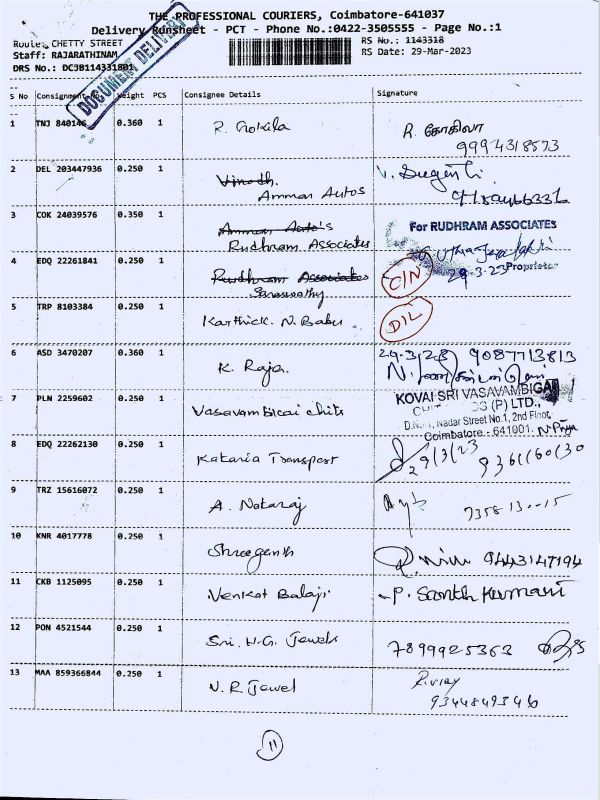 THE PROFESSIONAL COURIERS, Coimbatore-641037
Delivery Runsheet - PCT - Phone No.:0422-3505555 - Page No.:1
Route: CHETTY STREET
RS No.: 1143318
Staff: RAJARATHINAM
RS Date: 29-Mar-2023
DRS No.: DC3B114331801
DOCUMENT DELIVERY
S No Consignment No. Weight PCS Consignee Details Signature
1 TNJ 840146 0.360 1 R. Gokila R. கோகிலா
9994318573
2 DEL 203447936 0.250 1 Vinoth. V. Suganthi
Amman Autos
3 COK 24039576 0.350 1 Amman Auto's For RUDHRAM ASSOCIATES
Rudhram Associates
4 EDQ 22261841 0.250 1 Rudhram Associates 29-3-23 Proprietor
Saraswathy C/N
5 TRP 8103384 0.250 1 Karthick. N. Babu D/L
6 ASD 3470207 0.360 1 K. Raja. 29-3-23 9087713813
7 PLN 2259602 0.250 1 Vasavambicai chits KOVAI SRI VASAVAMBIGAI
(P) LTD.,
Nadar Street No.1, 2nd Floor,
Coimbatore - 641001. N Priya
8 EDQ 22262130 0.250 1 Kataria Transport 29/3/23
9 TRZ 15616072 0.250 1 A. Nataraj
10 KNR 4017778 0.250 1 Shreeganth 9443147194
11 CKB 1125095 0.250 1 Venkat Balaji P. Santh Kumari
12 PON 4521544 0.250 1 Sri. H.G. Jewels 7899925363
13 MAA 859366844 0.250 1 N.R. Jewel R. Vijay
11